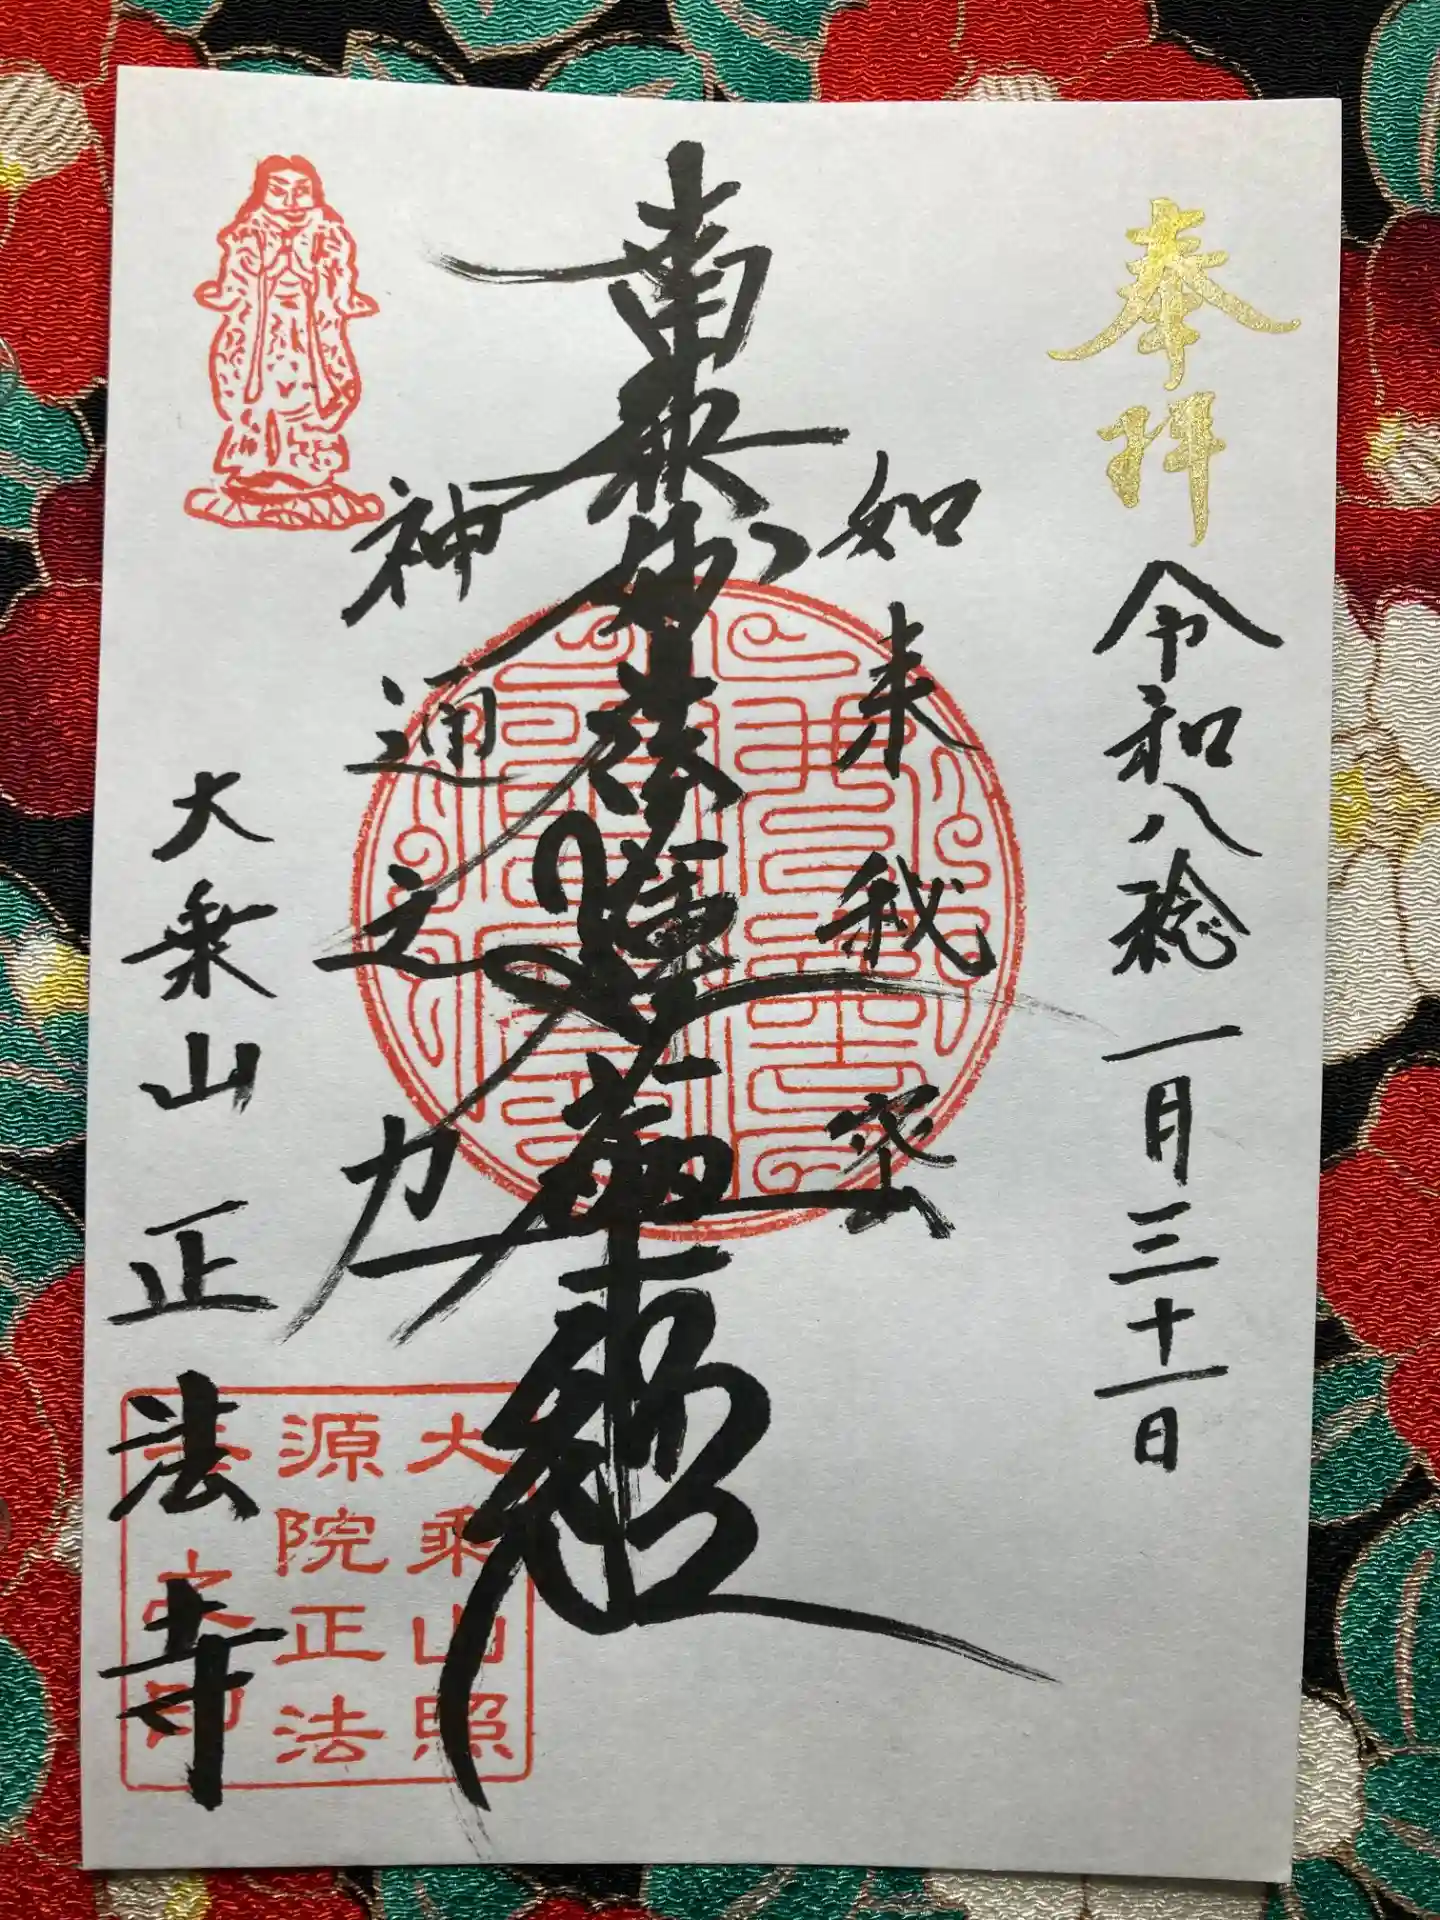 奉拝
令和八稔一月三十一日
如来秘密
南無妙法蓮華経
神通之力
大乗山正法寺
大乗山照
源院正法
寺
印